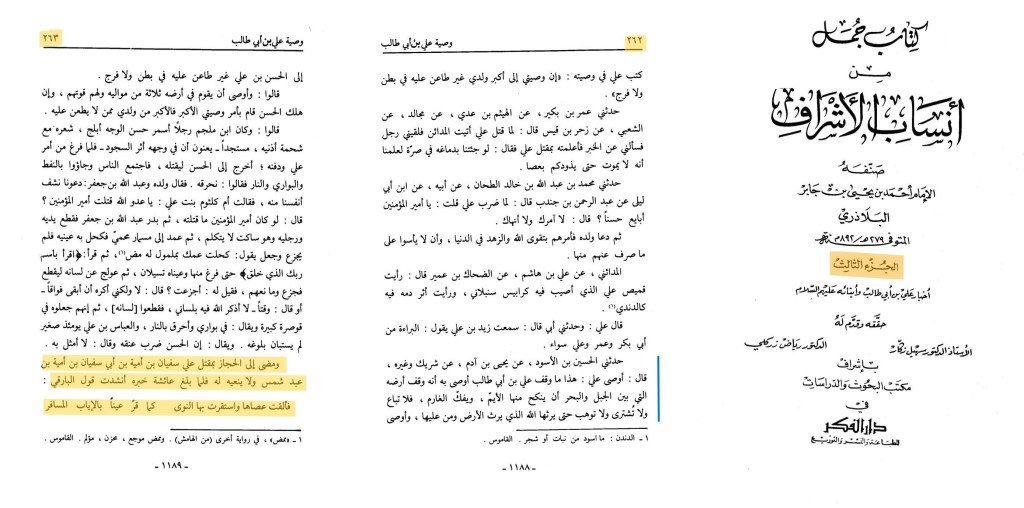 كتاب جمل
من
أنساب الأشراف
صنفه
الإمام أحمد بن يحيى بن جابر
البلاذري
المتوفى ٢٧٩هـ/٨٩٢م
الجزء الثالث
أخبار علي بن أبي طالب وأبنائه عليهم السلام
حققه وقدم له
الأستاذ الدكتور سهيل زكار الدكتور رياض زركلي
بإشراف
مكتب البحوث والدراسات
في
دار الفكر
للطباعة والنشر والتوزيع
٢٦٢ وصية علي بن أبي طالب
كتب علي في وصيته : «إن وصيتي إلى أكبر ولدي غير طاعن عليه في بطن
ولا فرج» .
حدثني عمر بن بكير، عن الهيثم بن عدي ، عن مجالد، عن
الشعبي ، عن زحر بن قيس قال : لما قتل علي أتيت المدائن فلقيني رجل
فسألني عن الخبر فأعلمته بمقتل علي فقال : لو جئتنا بدماغه في صرّة لعلمنا
أنه لا يموت حتى يذودكم بعصا .
حدثني محمد بن عبد الله بن خالد الطحان ، عن أبيه ، عن ابن أبي
ليلى عن عبد الرحمن بن جندب قال : لما ضرب علي قلت : يا أمير المؤمنين
أبايع حسناً ؟ قال : لا آمرك ولا أنهاك .
ثم دعا ولده فأمرهم بتقوى الله والزهد في الدنيا ، وأن لا يأسوا على
ما صرف عنهم منها .
المدائني ، عن علي بن هاشم ، عن الضحاك بن عمير قال : رأيت
قميص علي الذي أصيب فيه كرابيس سنبلاني ، ورأيت أثر دمه فيه
كالدندي(١) .
قال علي : وحدثني أبي قال : سمعت زيد بن علي يقول : البراءة من
أبي بكر وعمر وعلي سواء .
حدثني الحسين بن الأسود، عن يحيى بن آدم ، عن شريك وغيره ،
قال : أوصى علي : هذا ما وقف علي بن أبي طالب أوصى به أنه وقف أرضه
التي بين الجبل والبحر أن ينكح منها الأيّم ، ويفكّ الغارم ، فلا تباع
ولا تُشترى ولا توهب حتى يرثها الله الذي يرث الأرض ومن عليها ، وأوصى
١ - الدندن : ما اسود من نبات أو شجر . القاموس .
- ١١٨٨ -
وصية علي بن أبي طالب ٢٦٣
إلى الحسن بن علي غير طاعن عليه في بطن ولا فرج .
قالوا : وأوصى أن يقوم في أرضه ثلاثة من مواليه ولهم قوتهم ، وإن
هلك الحسن قام بأمر وصيتي الأكبر فالأكبر من ولدي ممن لا يطعن عليه .
قالوا : وكان ابن ملجم رجلاً أسمر حسن الوجه أبلج ، شعره مع
شحمة أذنيه ، مستنجداً ـ يعنون أن في وجهه أثر السجود ـ فلما فرغ من أمر
علي ودفنه ؛ أخرج إلى الحسن ليقتله ، فاجتمع الناس وجاؤوا بالنفط
والبواري والنار فقالوا : نحرقه . فقال ولده وعبد الله بن جعفر: دعونا نشف
أنفسنا منه ، فقالت أم كلثوم بنت علي : يا عدو الله قتلت أمير المؤمنين ؟
قال : لو كان أمير المؤمنين ما قتلته ، ثم بدر عبد الله بن جعفر فقطع يديه
ورجليه وهو ساكت لا يتكلم ، ثم عمد إلى مسمار محميّ فكحل به عينيه فلم
يجزع وجعل يقول : كحلت عمك بملمول له مض(١)، ثم قرأ : ﴿اقرأ باسم
ربك الذي خلق﴾ حتى فرغ منها وعيناه تسيلان ، ثم عولج عن لسانه ليقطع
فجزع وما نعهم ، فقيل له : أجزعت ؟ قال : لا ولكني أكره أن أبقى فواقاً ـ
أو قال : وقتاً ـ لا أذكر الله فيه بلساني ، فقطعوا [لسانه] ، ثم إنهم جعلوه في
قوصرة كبيرة ويقال : في بواري وأحرق بالنار ، والعباس بن علي يومئذ صغير
لم يستبان بلوغه . ويقال : إن الحسن ضرب عنقه وقال : لا أمثل به .
ومضى إلى الحجاز بمقتل علي سفيان بن أمية بن أبي سفيان بن أمية بن
عبد شمس ولا ينعيه له فلما بلغ عائشة خبره أنشدت قول البارقي :
فألقت عصاها واستقرت بها النوى كما قرّ عيناً بالإياب المسافر
١ - «ممض» ، في رواية أخرى (من الهامش) . وممض موجع ، محزن ، مؤلم . القاموس .
- ١١٨٩ -